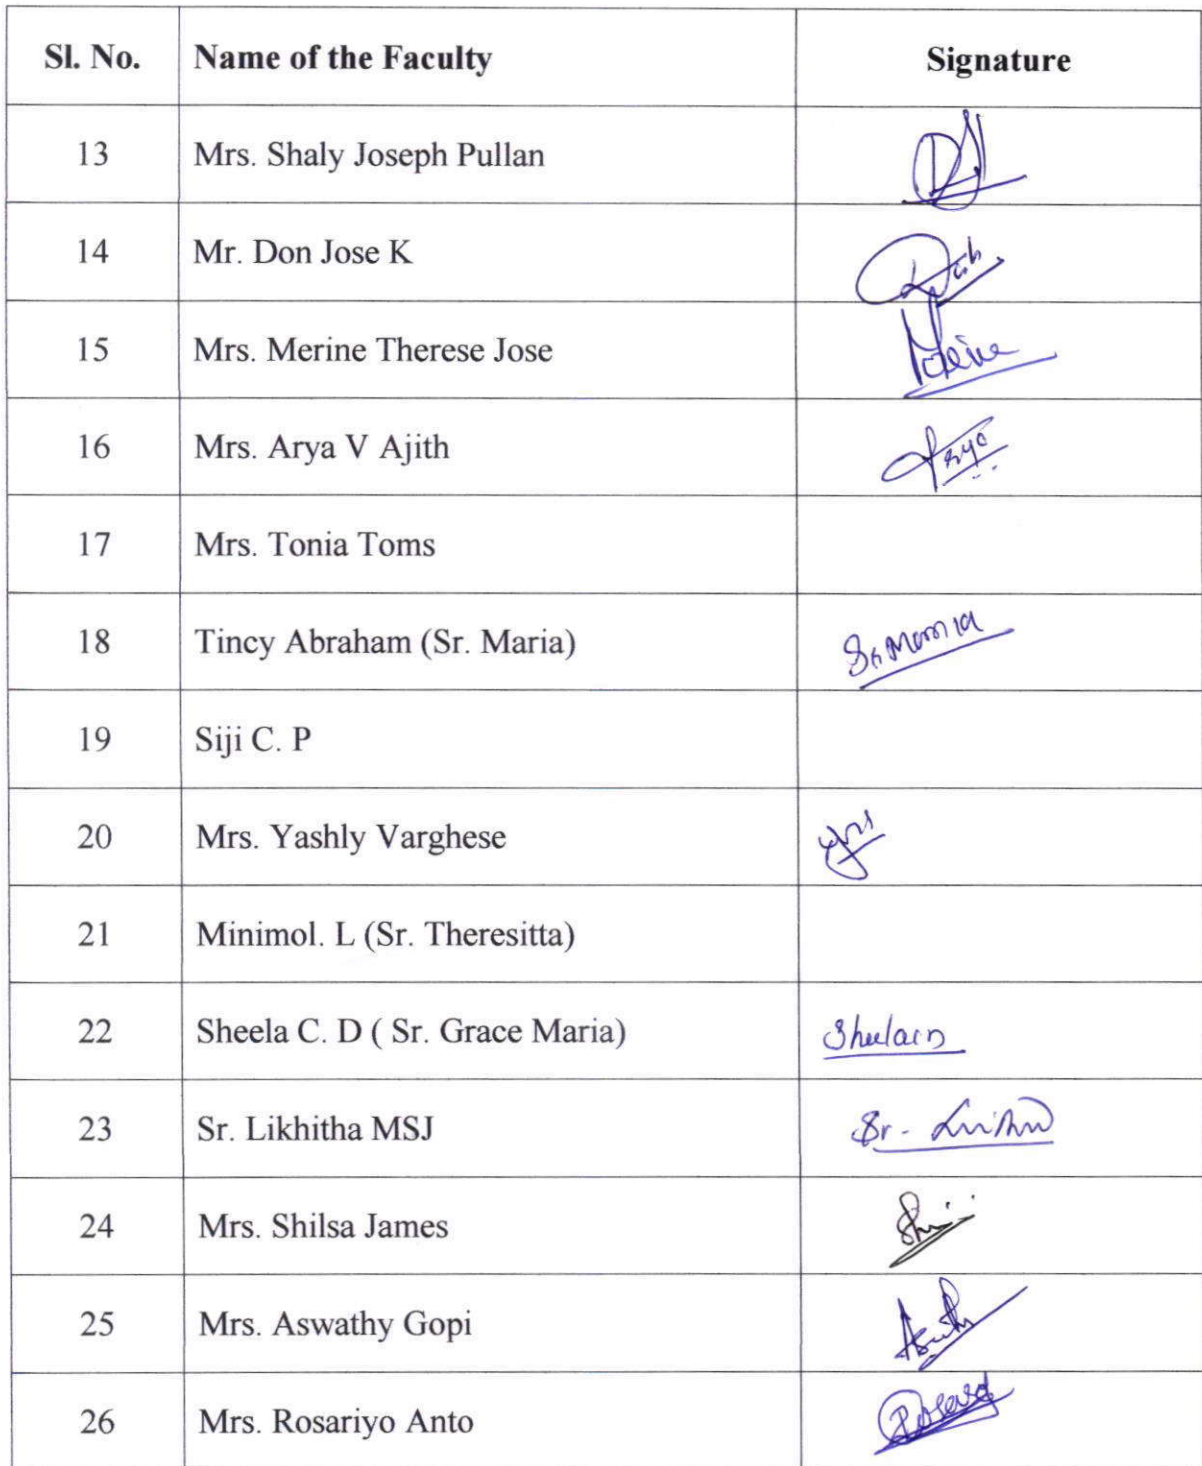 Sl. No. Name of the Faculty Signature
13 Mrs. Shaly Joseph Pullan
14 Mr. Don Jose K
15 Mrs. Merine Therese Jose
16 Mrs. Arya V Ajith
17 Mrs. Tonia Toms
18 Tincy Abraham (Sr. Maria)
19 Siji C. P
20 Mrs. Yashly Varghese
21 Minimol. L (Sr. Theresitta)
22 Sheela C. D ( Sr. Grace Maria)
23 Sr. Likhitha MSJ Sr.
24 Mrs. Shilsa James
25 Mrs. Aswathy Gopi
26 Mrs. Rosariyo Anto